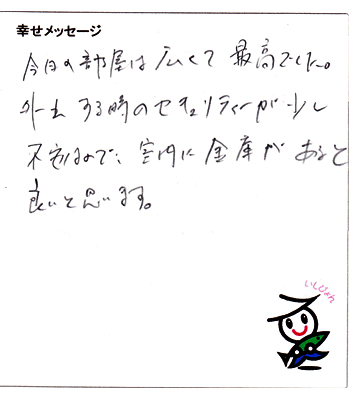 幸せメッセージ
今日の部屋は広くて最高でした。
外出する時のセキュリティーが少し
不安なので、室内に金庫があると
良いと思います。